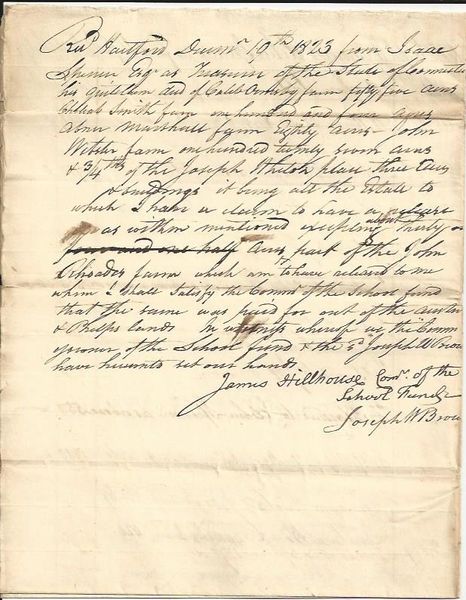 Recd Hartford Decemr 10th 1823 from Isaac
Spencer Esqr as Treasurer of the State of Connecticu
his quit claim deed of Caleb Ormsby farm fifty five acres
Smith farm one hundred and four acres
Abner Marshall farm Eighty acres - John
Webster farm one hundred twenty seven acres
& 3/4ths of the Joseph place three acres
& buildings it being all the Estate to
which I have a claim to have a release
as within mentioned excepting about thirty
four and one half acres part of the John
Rhoades farm which am to have released to me
when I shall satisfy the Commr of the School fund
that the same was paid for out of the Austin
& Phelps lands In witness whereof we the Comm
issioner of the School fund & the sd Joseph W Brow
have hereunto set our hands
James Hillhouse Comr. of the
School Fund
Joseph W Brow